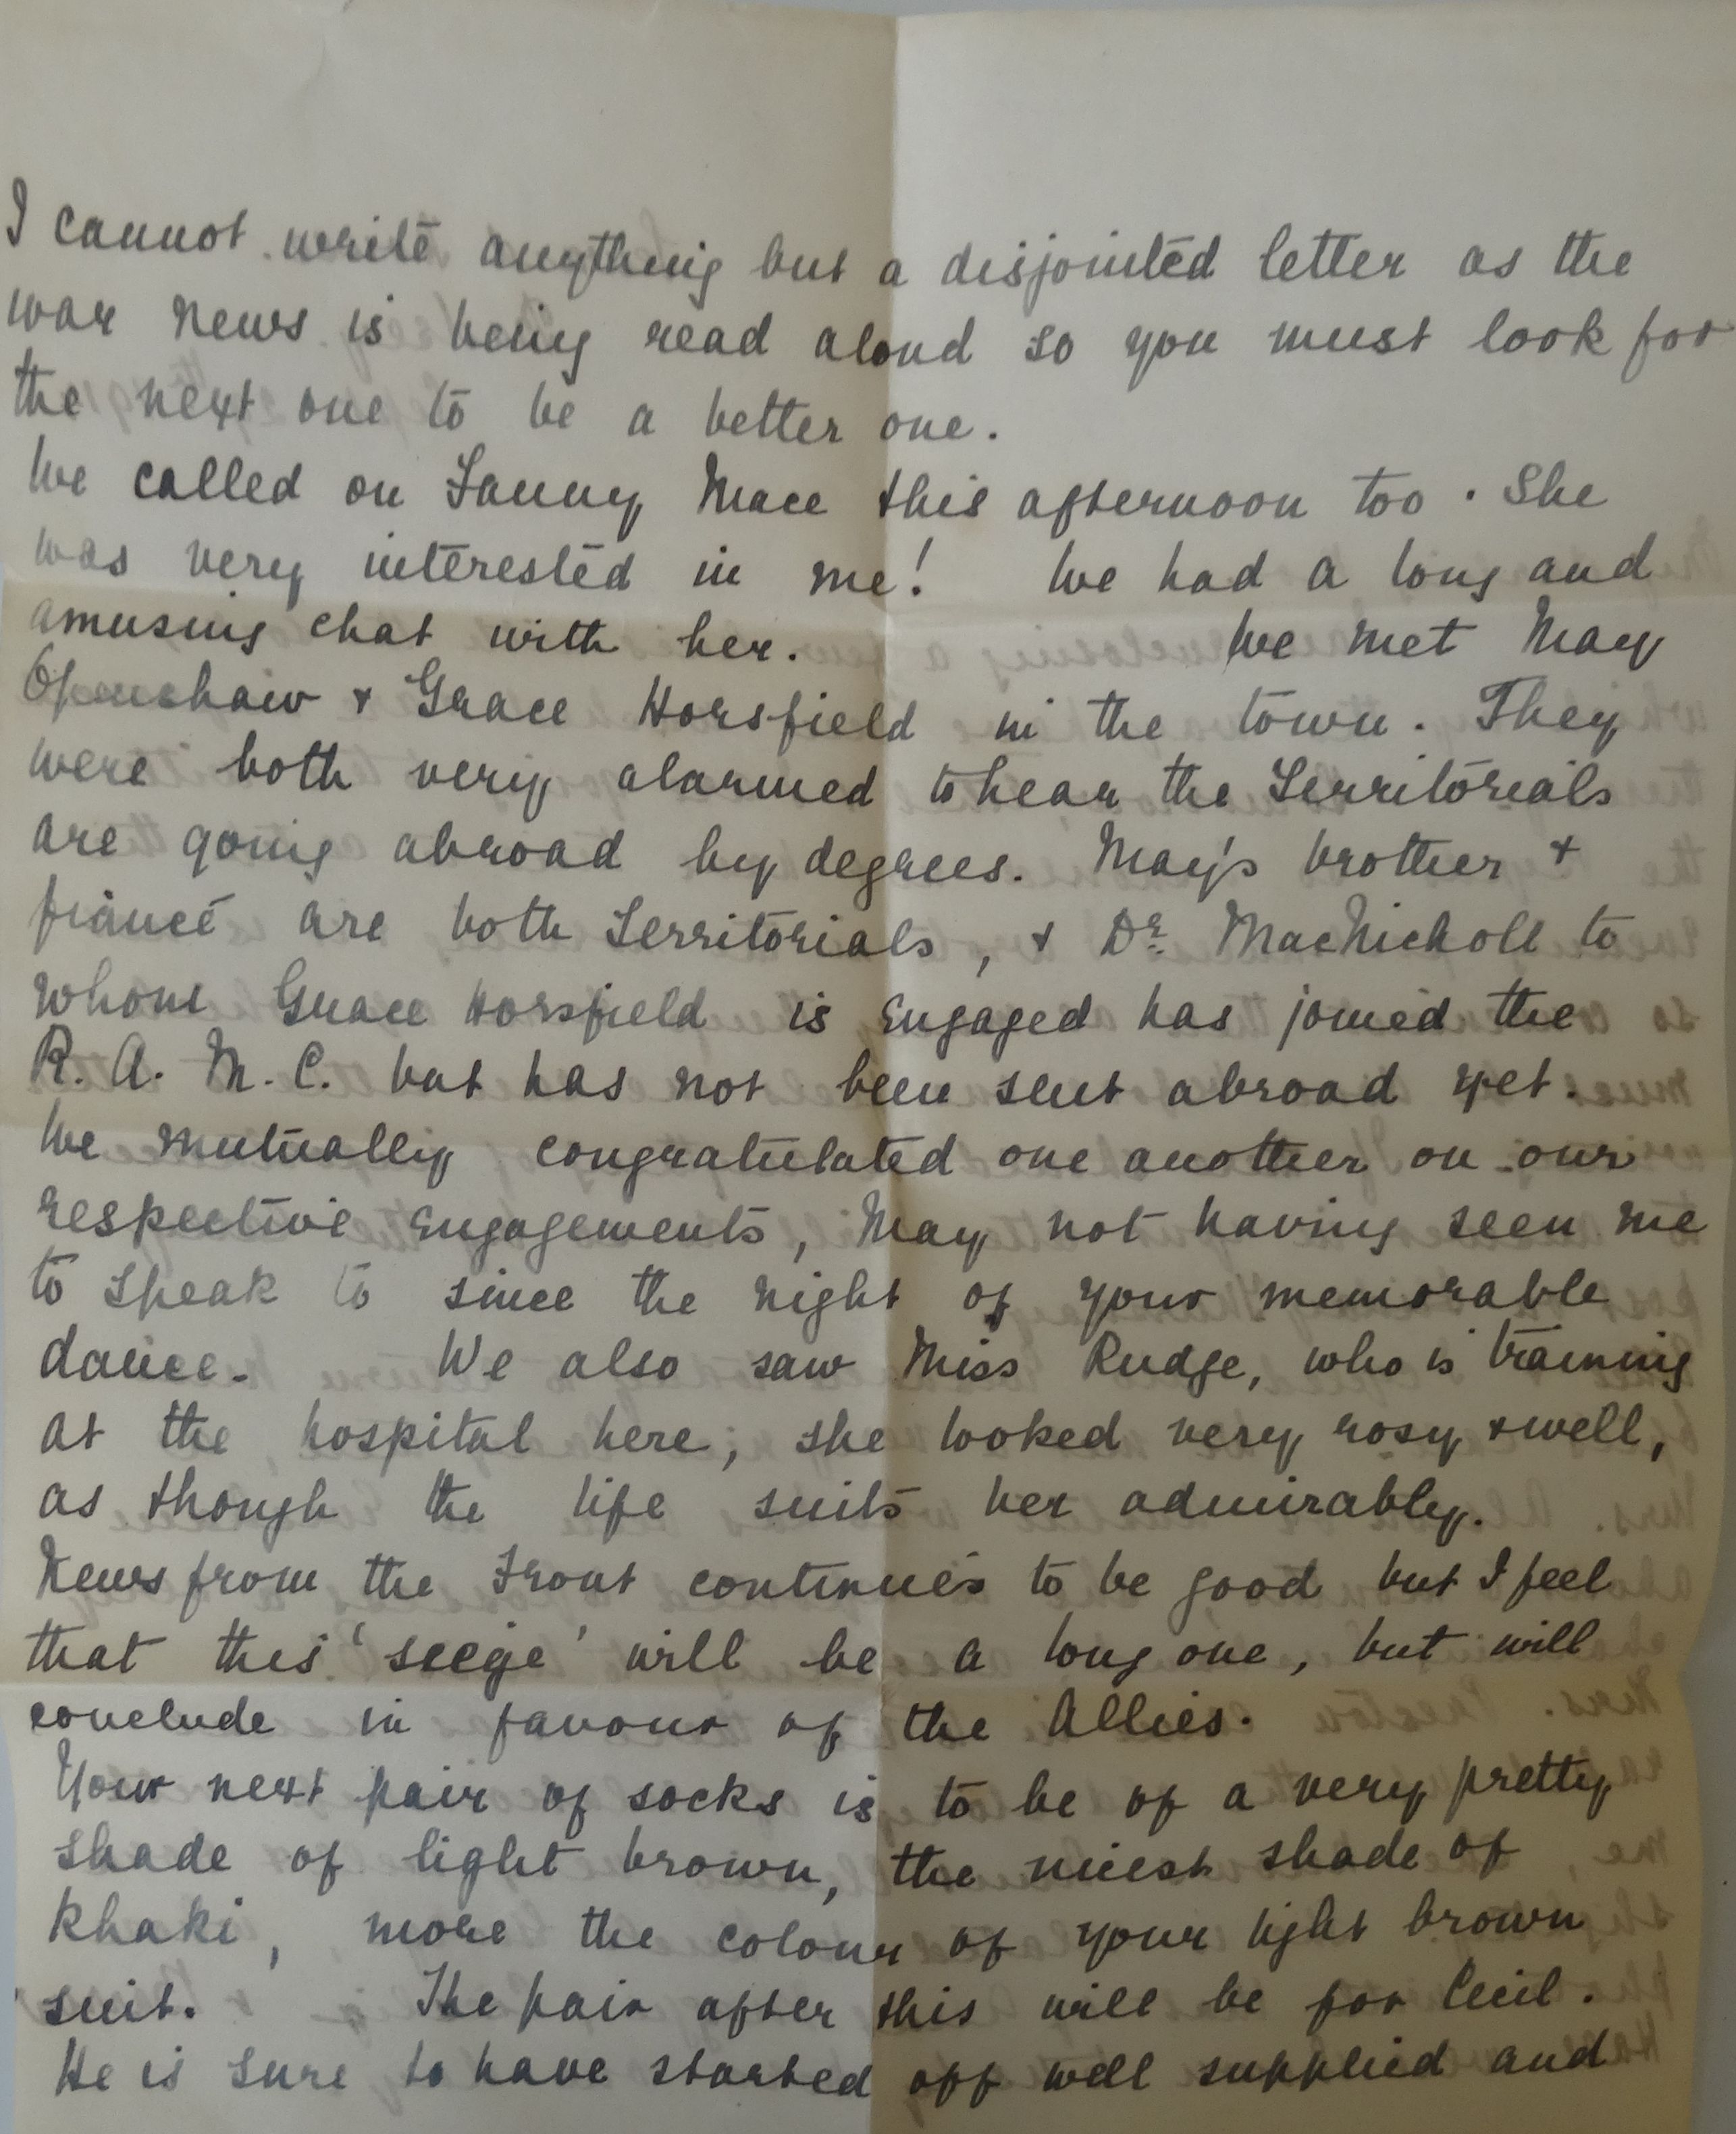 I cannot write anything but a disjointed letter as the
war news is being read aloud so you must look for
the next one to be a better one.
We called on Fanny Mace this afternoon too. She
was very interested in me! We had a long and
amusing chat with her. We met May
Openshaw + Grace Horsfield in the town. They
were both very alarmed to hear the Territorials
are going abroad by degrees. May's brother +
fiancé are both Territorials, + Dr. MacNicholl to
whom Grace Horsfield is engaged has joined the
R. A. M. C. but has not been sent abroad yet.
We mutually congratulated one another on our
respective engagements, May not having seen me
to speak to since the night of your memorable
dance. We also saw Miss Rudge, who is training
at the hospital here, she looked very rosy + well,
as though the life suits her admirably.
News from the Front continues to be good but I feel
that this 'seege' will be a long one, but will
conclude in favour of the Allies.
Your next pair of socks is to be of a very pretty
shade of light brown, the nicest shade of
khaki, more the colour of your light brown
suit. The pair after this will be for Cecil.
He is sure to have started off well supplied and